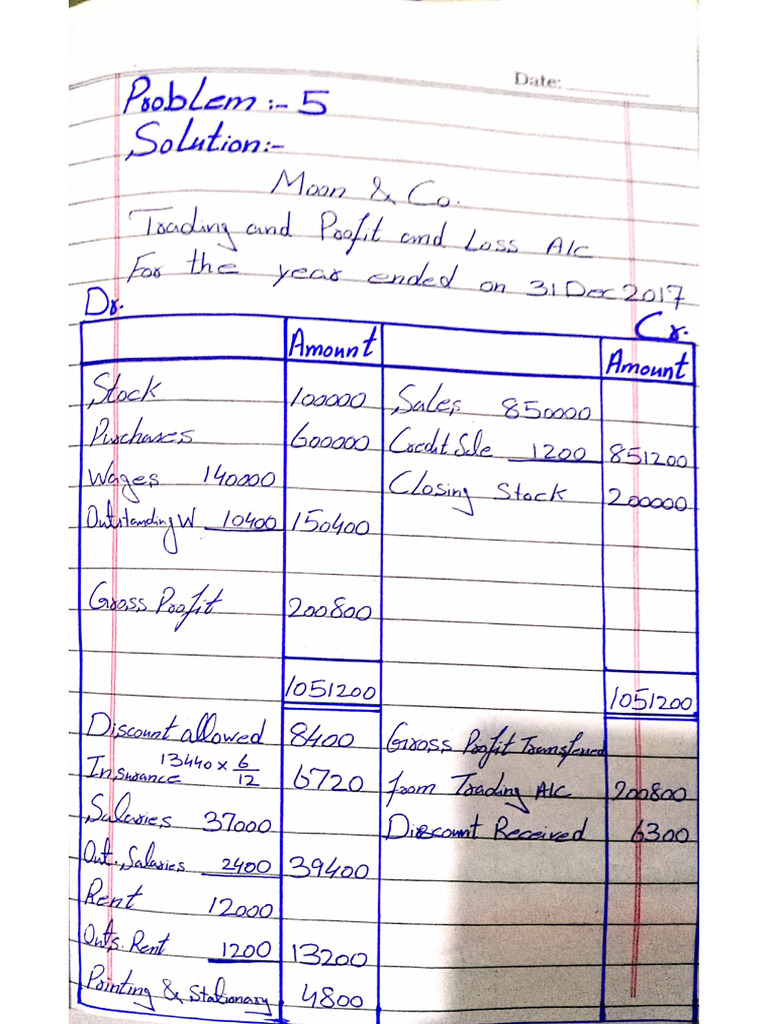 Date:
Problem :- 5
Solution:-
Moon & Co.
Trading and Profit and Loss A/c
For the year ended on 31 Dec 2017
Dr.
Cr.
Amount
Amount
Stock 100000 Sales 850000
Purchases 600000 Credit Sale 1200 851200
Wages 140000 Closing Stock 200000
Outstanding W 10400 150400
Gross Profit 200800
1051200 1051200
Discount allowed 8400 Gross Profit Transferred
Insurance 13440 × 6/12 6720 from Trading A/c 200800
Salaries 37000 Discount Received 6300
Out. Salaries 2400 39400
Rent 12000
Outs. Rent 1200 13200
Printing & Stationary 4800